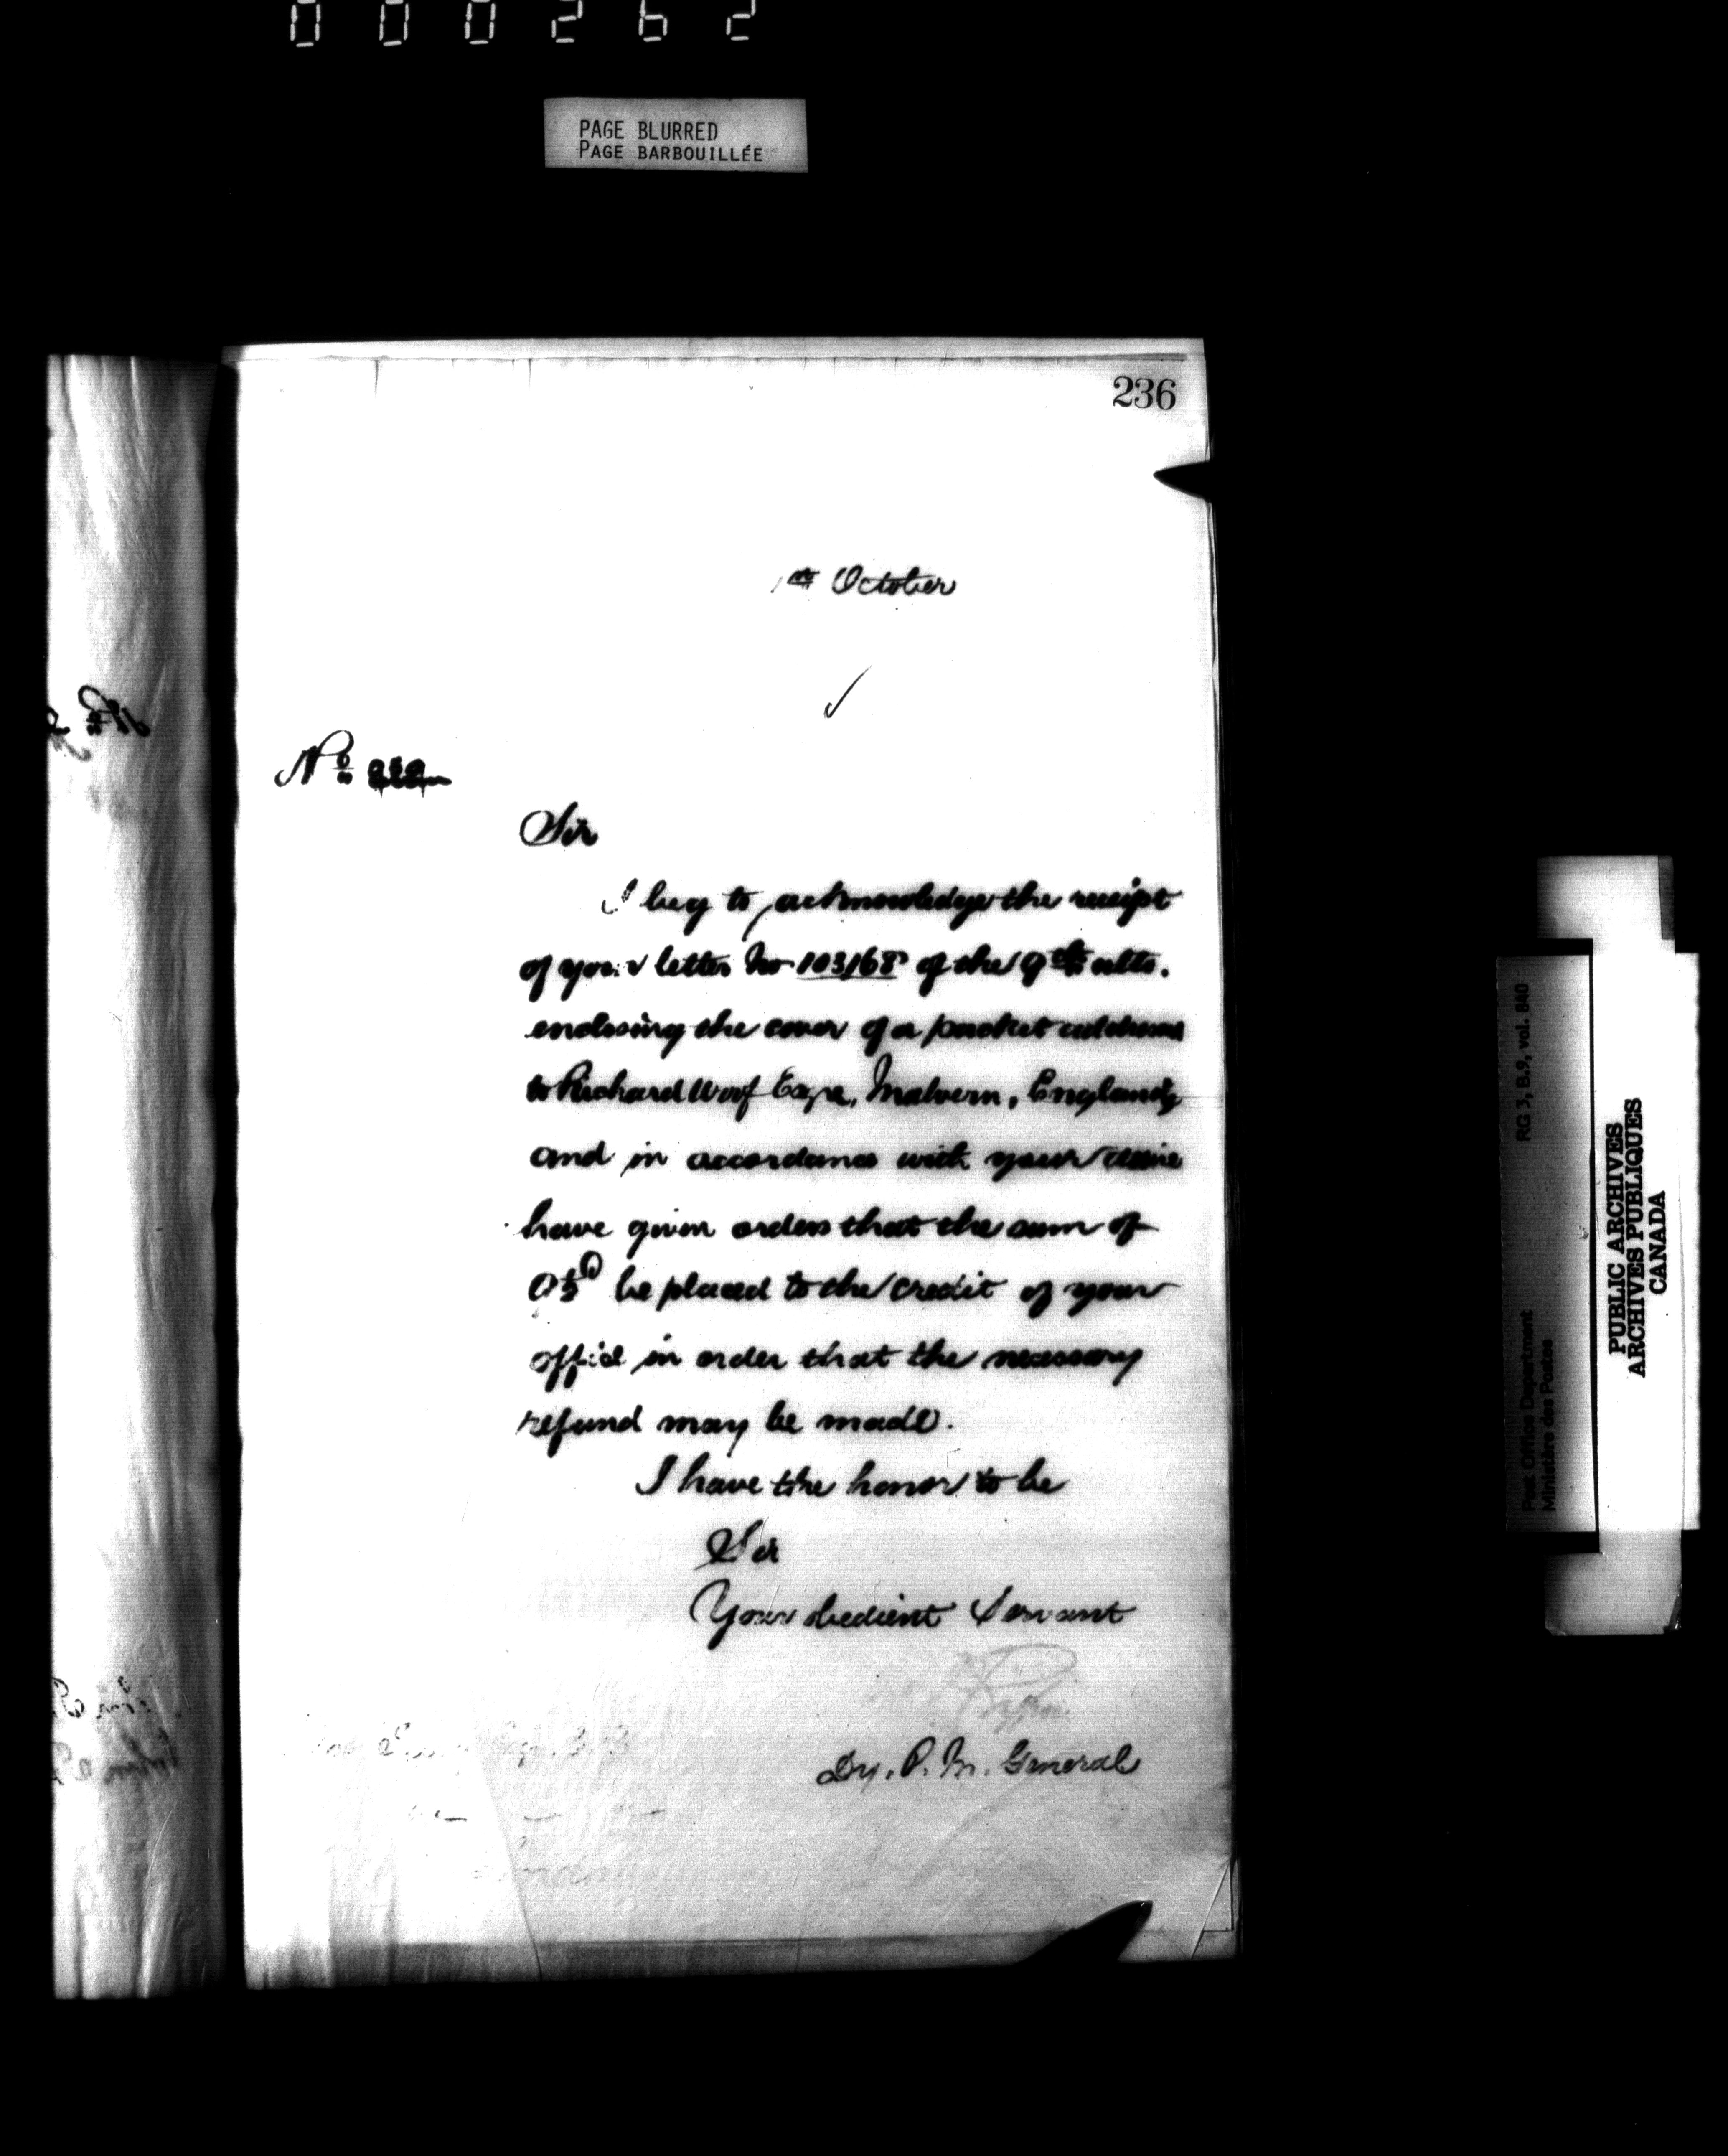 000262
PAGE BLURRED
PAGE BARBOUILLÉE
236
1st October
No
Sir
I beg to acknowledge the receipt
of your letter No 103168 of the 9th ulto.
enclosing the cover of a packet address
to Richard Woof Esqre, Malvern, England,
and in accordance with your desire
have given orders that the sum of
be placed to the credit of your
office in order that the necessary
refund may be made.
I have the honor to be
Sir
Your obedient Servant
Dy. P. M. General
RG 3, B.9, vol. 840
Post Office Department
Ministère des Postes
PUBLIC ARCHIVES
ARCHIVES PUBLIQUES
CANADA